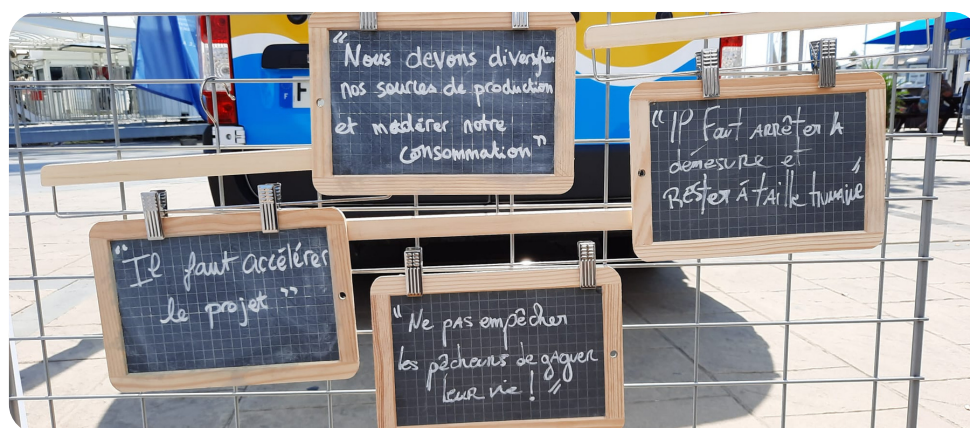 "Nous devons diversifier
nos sources de production
et modérer notre
consommation"
"IP Faut ARRÊTER LA
démesure et
RESTER À TAILLE HUMAINE"
"Il faut accélérer
le projet"
"Ne pas empêcher
les pêcheurs de gagner
leur vie !"
F